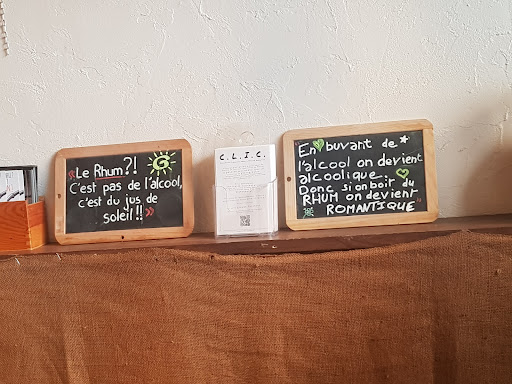 "Le Rhum?!
C'est pas de l'alcool,
c'est du jus de
soleil!!"
C.L.I.C.
"En buvant de
l'alcool on devient
alcoolique.
Donc si on boir du
RHUM on devient
ROMANTIQUE"